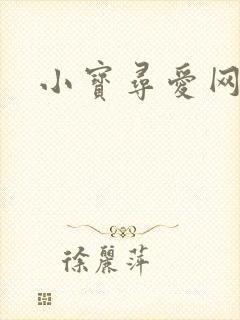 小寳尋愛网
徐麗萍